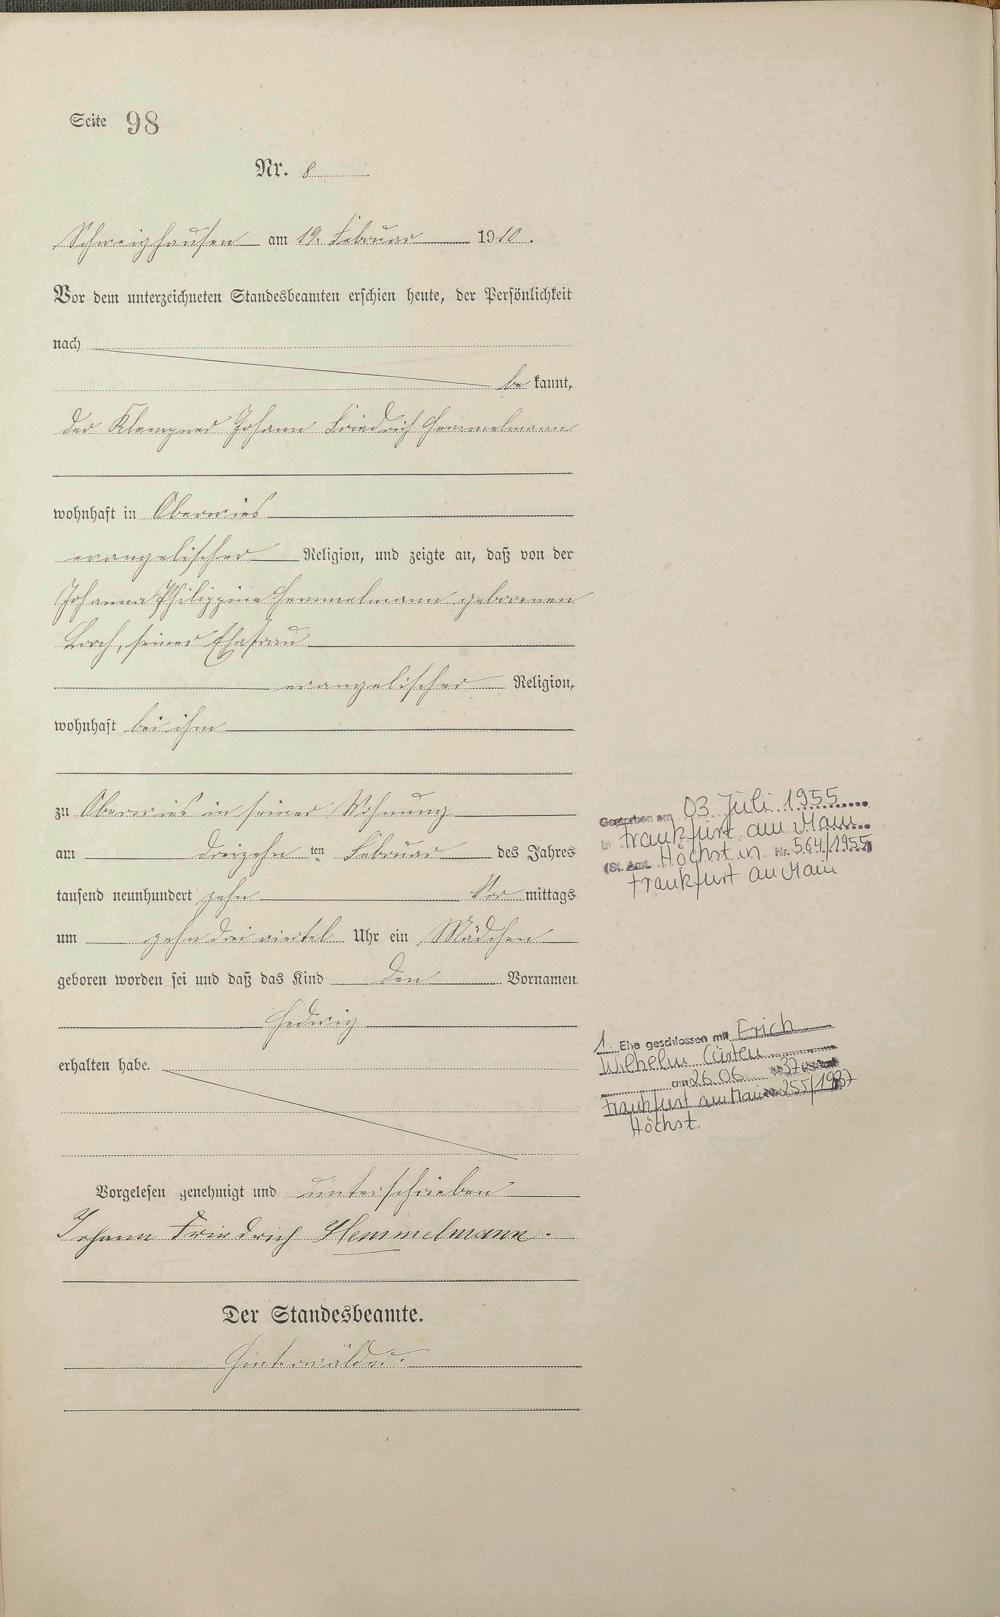 Seite 98
Nr. 8
Schweighausen am 19. Februar 1910.
Vor dem unterzeichneten Standesbeamten erschien heute, der Persönlichkeit
nach
be kannt,
der Klempner Johann Friedrich Hemmelmann
wohnhaft in Oberwies
evangelischer Religion, und zeigte an, daß von der
Johanna Philippine Hemmelmann geborenen
Lorch, seiner Ehefrau
evangelischer Religion,
wohnhaft bei ihm
zu Oberwies in seiner Wohnung
am dreizehn ten Februar des Jahres
tausend neunhundert zehn Vor mittags
um zehn drei viertel Uhr ein Mädchen
geboren worden sei und daß das Kind den Vornamen
Hedwig
erhalten habe.
Vorgelesen genehmigt und unterschrieben
Johann Friedrich Hemmelmann.
Der Standesbeamte.
Hinterwälder.
Gestorben am 03. Juli 1955
in Frankfurt am Main
(St. Amt. Höchst in Nr. 564/1955)
Frankfurt am Main
1. Ehe geschlossen mit Erich
Wilhelm
am 26.06 1937
Frankfurt am Main 255/1937
Höchst.